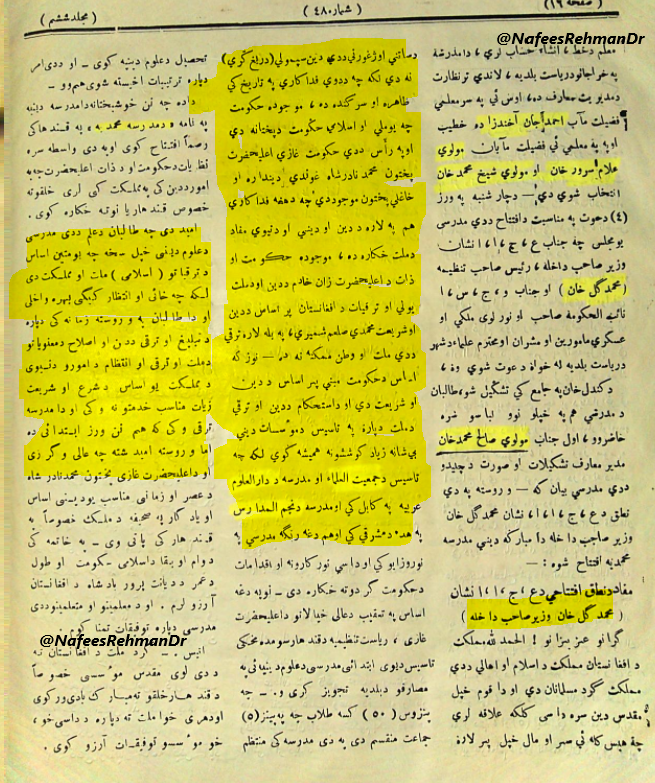 صفحه (۱۹)
(شماره ۴۸۰)
(مجلد ششم)
@NafeesRehmanDr
معلم دخط ، انشاء حساب لری ، دامدرشهٔ
په خرا جاتو در یاست بلدیه ، لاندی تر نظارت
د مدیریت معارف ده ، اوس ئی په سر معلمی
فضیلت مآب احمد جان آخند زاده خطیب
او په معلمی ئی فضیلت مآبان مولوی
غلام سرور خان او مولوی شیخ محمد خان
انتخاب شوی دی ! — د چار شنبه په ورز
(۴) دحوت په مناسبت دافتتاح ددی مدرسی
یو مجلس چه جناب ع ، ج ، ا ، ا ، نشان
وزیر صاحب داخله ، رئیس صاحب تنظیمه
(محمد گل خان) او جناب و ، ج ، س ، ا
نائب الحکومة صاحب او نور لوی ملکی او
عسکری مامورین او مشران او محترم علماء دشهر
دریاست بلدیه له خوا دعوت شوی وه ،
د کندل خان په جامع کی تشکیل شو ، طالبان
د مدرسی هم په خپلو نوو لباسو سره
حاضروو ، اول جناب مولوی صالح محمد خان
مدیر معارف تشکیلات او صورت د چلیدو
ددی مدرسی بیان که — و روسته په دی
نطاق د ع ، ج ، ا ، ا ، نشان محمد گل خان
وزیر صاحب داخله دا مبارکه دینی مدرسه
محمدیه افتتاح شوه : —
مفاد دنطق افتتاحی دع ، ج ، ا ، ا نشان
( محمد گل خان وزیر صاحب داخله )
گرانو عزیزانو ! الحمد لله مملکت
د افغانستان مملکت د اسلام او اهالی ددی
مملکت گرد مسلمانان دی او دا قوم خپل
مقدس دین سره داسی کلکه علاقه لری
چه هیڅ کله ئی سر او مال خپل پر لاره
د ساتنی او ژغورنی ددی دین سپمولی (دریغ کړی)
نه دی لکه چه ددوی فداکاری په تاریخ کی
ظاهره او سرگنده ده ، موجوده حکومت
چه یو ملی او اسلامی حکومت دپښتانه دی
او په رأس ددی حکومت غازی اعلیحضرت
پښتون محمد نادر شاه غوندی دینداره او
خاغلی پښتون موجود دی چه دهغه فداکاری
هم په لاره د دین او دینی او دنیوی مفاد
دملت خکاره ده ، موجوده حکومت او
ذات د اعلیحضرت زان خادم ددین او دملت
بولی او ترقیات د افغانستان پر اساس ددین
او شریعت محمدی صلعم شمیری ، په بله لاره ترقی
ددی ملت او وطن ممکنه نه ده — نوز که
اساس دحکومت مبنی پر اساس د دین
او شریعت دی او داستحکام ددین او ترقی
دملت دپاره په تاسیس دموسسات دینی
بی شانه زیاد کوششونه همیشه کوی لکه چه
تاسیس د جمعیت العلماء او مدرسه د دارالعلوم
عربیه په کابل کی او مدرسه دنجم المدارس
په هده دمشرقی کی اوهم دغه رنگه مدرسی په
نوروزایو کی او داسی نور کارونه او اقدامات
دحکومت گر دوته خکاره دی . — نو په دغه
اساس په تعقیب دعالی خیالانو داعلیحضرت
غازی ، ریاست تنظیمیه دقندهار سو مده مخکی
تاسیس دیوی ابتدائی مدرسی دعلوم دینیه ئی په
مصارفو دبلدیه تجویز کری و . — چه
پنزوس (۵۰) کسه طلاب چه په پینز (۵)
جماعت منقسم دی په دی مدرسه کی منتظم
تحصیل دعلوم دینیه کوی . — او ددی امر
دپاره ترتیبات اخیسته شوی هم وو —
داده چه نن خوشبختانه دا مدرسه دینیه
په نامه د مدرسه محمدیه ، په قندهار کی
رسماً افتتاح کوی او په دی واسطه سره
نظریات دحکومت او د ذات د اعلیحضرت چه په
امور ددین کی په مملکت کی لری خلقو ته
خصوص قندهاریانو ته خکاره کوی .
امید دی چه طالبان دعلم ددی مدرسی
دعلوم دینی خپل سخه چه یو متین اساس
د ترقیاتو ( اسلامی ) ملت او مملکت دی
لکه چه خائی او انتظار کیگی بهره واخلی
او دا طالبان په وروسته زمانه کی دپاره
د تبلیغ او ترقی ددین او اصلاح دمعنویاتو
دملت او ترقی او انتظام د امورو دنیوی
د مملکت پو اساس د شرع او شریعت
زیات مناسب خدمتونه و کی او دا مدرسه
ترقی و کی که هم نن ورز ابتدائی ده
اما و روسته امید شته چه عالی و گرزی
او داعلیحضرت غازی پختون محمد نادر شاه
د عصر او زمانی مناسب یو دینی اساس
او یادگار په صحیفه د مملکت خصوصاً په
قندهار کی پاتی وی — په خاتمه کی
دوام او بقا داسلامی حکومت او طول
دعمر د دیانت پرور پادشاه د افغانستان
آرزو لرم . او د معلمینو او متعلمینو ددی
مدرسی دپاره توفیقات تمنا کوم .
@NafeesRehmanDr
انیس . — گرد ملت د افغانستان ته
د دی لوی مقدس موسسی خصوصاً
د قندهار خلقو ته مبارک بادی ورکوی
او دهری خوا ملت ته دپاره د داسی خو ،
خو موسسو توفیقات آرزو کوی .